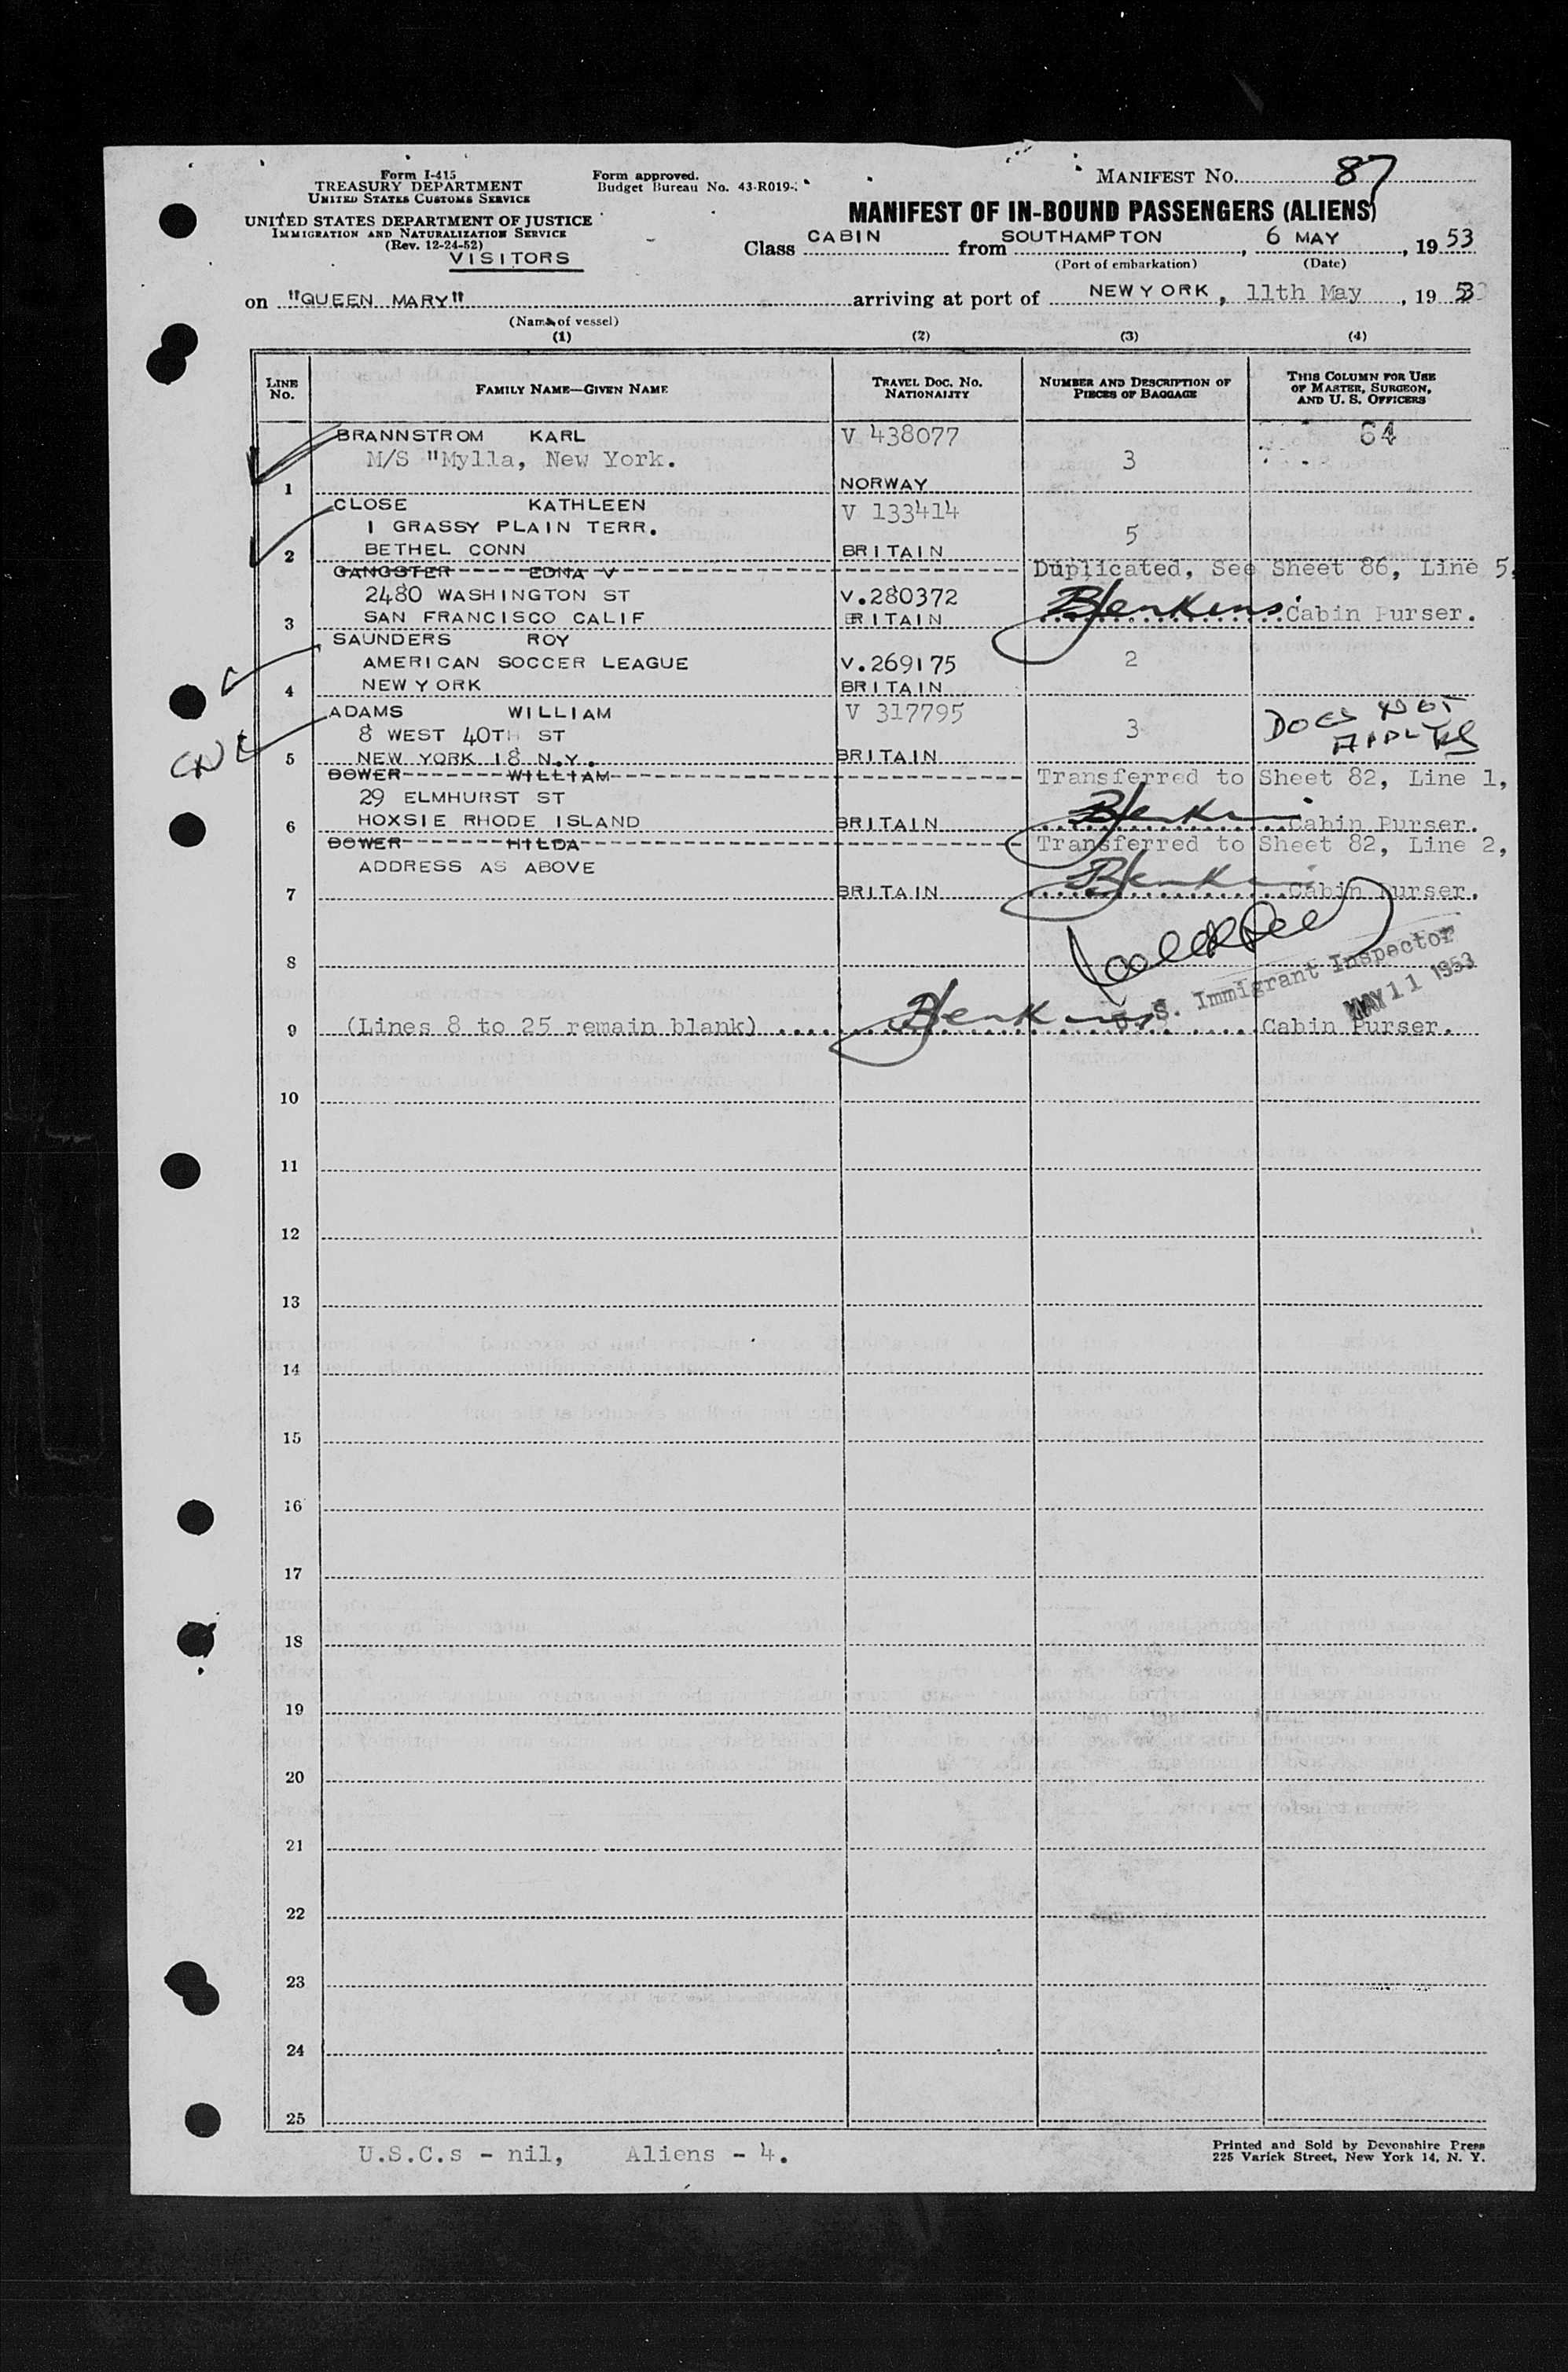 Form I-415
TREASURY DEPARTMENT
UNITED STATES CUSTOMS SERVICE
UNITED STATES DEPARTMENT OF JUSTICE
IMMIGRATION AND NATURALIZATION SERVICE
(Rev. 12-24-52)
VISITORS
Form approved.
Budget Bureau No. 43-R019-
MANIFEST NO. 87
MANIFEST OF IN-BOUND PASSENGERS (ALIENS)
Class CABIN from SOUTHAMPTON, 6 MAY, 19 53
(Port of embarkation) (Date)
on "QUEEN MARY" arriving at port of NEW YORK, 11th May, 19 53
(Name of vessel)
(1) (2) (3) (4)
LINE No. FAMILY NAME—GIVEN NAME TRAVEL DOC. NO. NATIONALITY NUMBER AND DESCRIPTION OF PIECES OF BAGGAGE THIS COLUMN FOR USE OF MASTER, SURGEON, AND U. S. OFFICERS
BRANNSTROM KARL V 438077 64
M/S "Mylla, New York. 3
1 NORWAY
CLOSE KATHLEEN V 133414
1 GRASSY PLAIN TERR. 5
2 BETHEL CONN BRITAIN
GANGSTER EDNA V Duplicated, See Sheet 86, Line 5,
2480 WASHINGTON ST V.280372
3 SAN FRANCISCO CALIF BRITAIN BJenkins Cabin Purser.
SAUNDERS ROY
AMERICAN SOCCER LEAGUE V.269175 2
4 NEW YORK BRITAIN
ADAMS WILLIAM V 317795
8 WEST 40TH ST 3 DOES NOT
5 NEW YORK 18 N.Y. BRITAIN
BOWER WILLIAM Transferred to Sheet 82, Line 1,
29 ELMHURST ST
6 HOXSIE RHODE ISLAND BRITAIN BJenkins Cabin Purser.
BOWER HILDA Transferred to Sheet 82, Line 2,
ADDRESS AS ABOVE
7 BRITAIN BJenkins Cabin Purser.
8
U. S. Immigrant Inspector
MAY 11 1953
9 (Lines 8 to 25 remain blank) BJenkins Cabin Purser.
10
11
12
13
14
15
16
17
18
19
20
21
22
23
24
25
U.S.C.s - nil, Aliens - 4.
Printed and Sold by Devonshire Press
225 Varick Street, New York 14, N. Y.